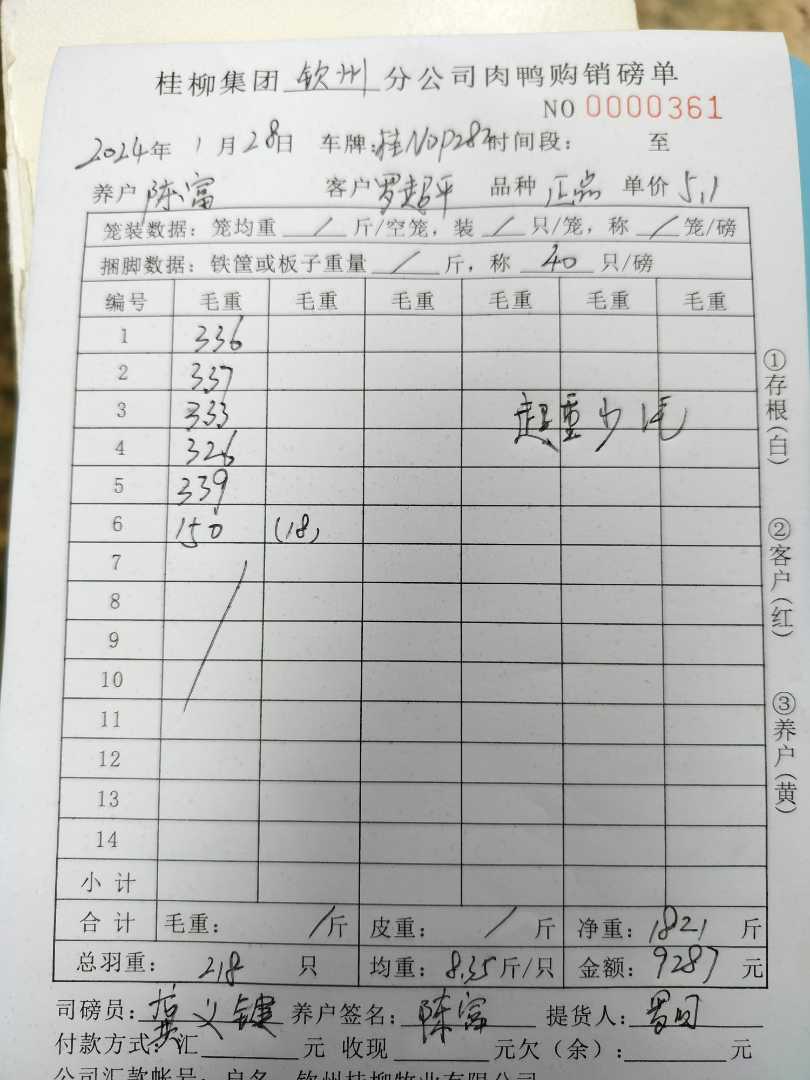 桂柳集团 钦州 分公司肉鸭购销磅单
NO 0000361
2024年 1月28日 车牌:桂N0P282 时间段: 至
养户 陈富 客户 罗超平 品种 正品 单价 5.1
笼装数据: 笼均重 / 斤/空笼, 装 / 只/笼, 称 / 笼/磅
捆脚数据: 铁筐或板子重量 / 斤, 称 40 只/磅
编号 毛重 毛重 毛重 毛重 毛重 毛重
1 336
2 337
3 333
超重少毛
4 326
5 339
6 150 (18)
7
8
9
10
11
12
13
14
小计
合计 毛重: / 斤 皮重: / 斤 净重: 1821 斤
总羽重: 218 只 均重: 8.35 斤/只 金额: 9287 元
司磅员: 义键 养户签名: 陈富 提货人:
付款方式: 汇 元 收现 元欠(余): 元
公司汇款帐号: 户名 钦州桂柳牧业有限公司
①存根(白)
②客户(红)
③养户(黄)